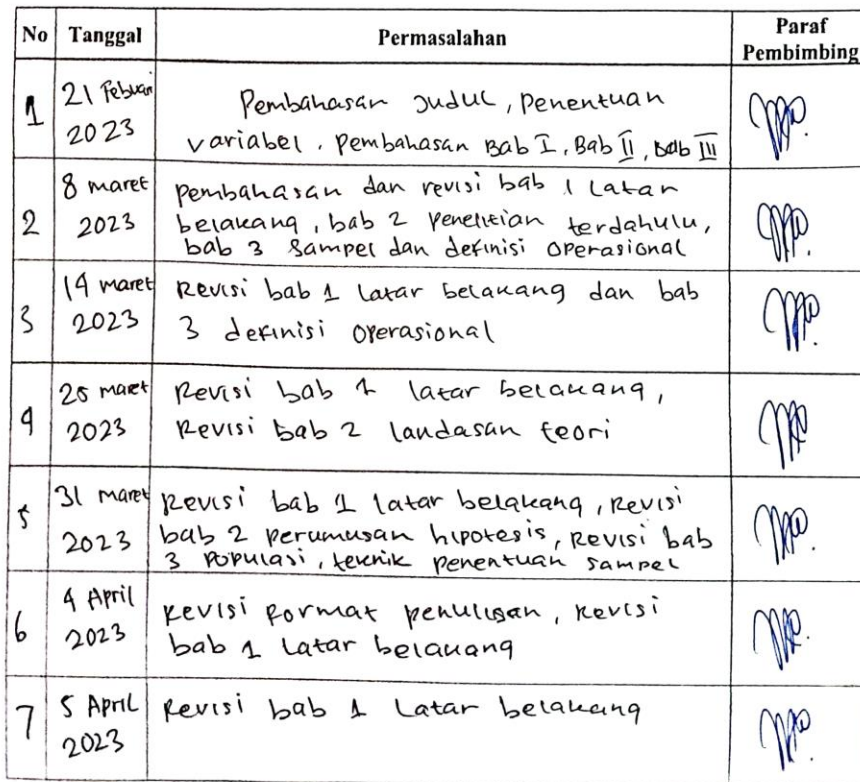 No Tanggal Permasalahan Paraf Pembimbing
1 21 Febuari 2023
Pembahasan Judul, Penentuan
variabel. Pembahasan Bab I, Bab II, Bab III
2 8 maret 2023
pembahasan dan revisi bab 1 Latar
belakang, bab 2 penelitian terdahulu,
bab 3 Sampel dan definisi operasional
3 14 maret 2023
Revisi bab 1 Latar belakang dan bab
3 definisi operasional
4 maret 2023
Revisi bab 1 latar belakang,
Revisi bab 2 landasan teori
5 31 maret 2023
Revisi bab 1 latar belakang, Revisi
bab 2 perumusan hipotesis, Revisi bab
3 Populasi, teknik penentuan sampel
6 4 April 2023
Revisi Format penulisan, Revisi
bab 1 Latar belakang
7 5 April 2023
Revisi bab 1 Latar belakang